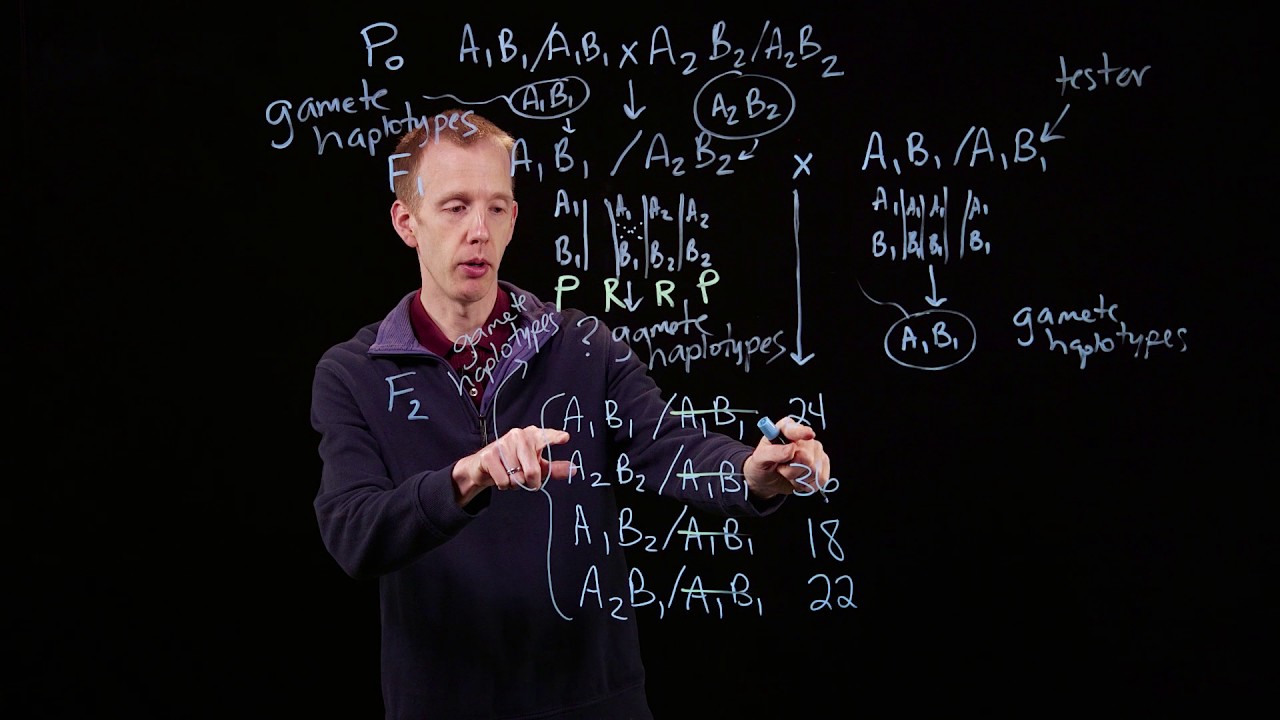 P₀ A₁B₁/A₁B₁ x A₂B₂/A₂B₂
tester
gamete haplotypes
A₁B₁
A₂B₂
F₁ A₁B₁/A₂B₂ x A₁B₁/A₁B₁
A₁ A₁ A₂ A₂
B₁ B₁ B₂ B₂
A₁ A₁ A₁ / A₁
B₁ B₁ B₁ B₁
P R R P
? gamete haplotypes
A₁B₁
gamete haplotypes
gamete haplotypes
F₂
A₁B₁/A₁B₁ 24
A₂B₂/A₁B₁ 36
A₁B₂/A₁B₁ 18
A₂B₁/A₁B₁ 22